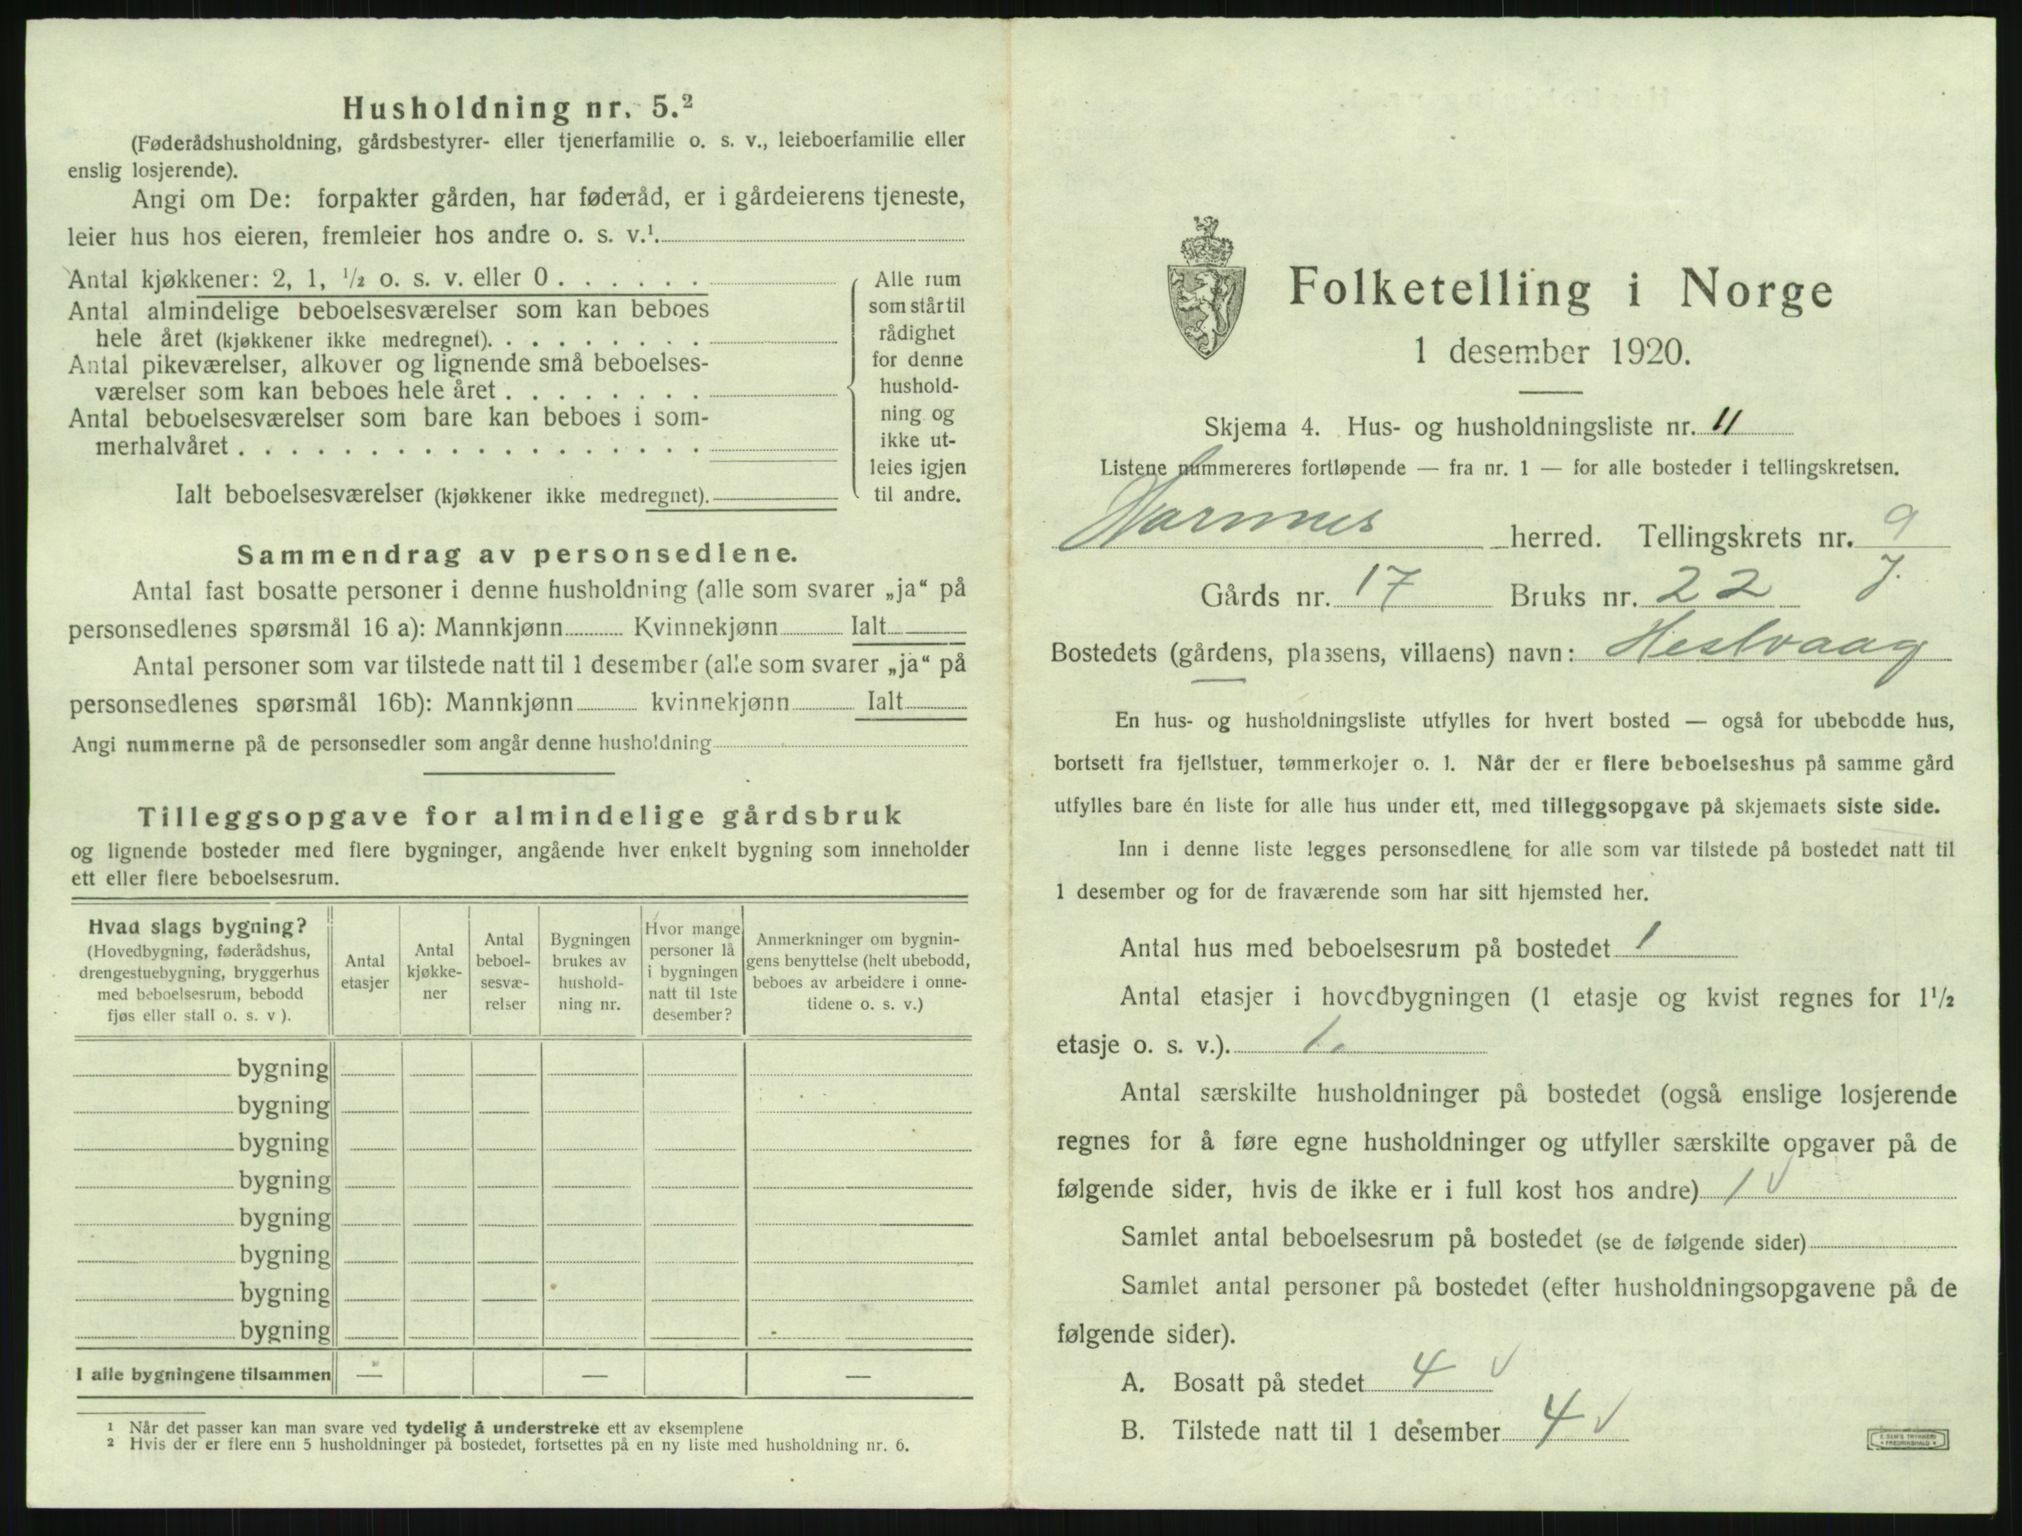 Husholdning nr. 5.²
(Føderådshusholdning, gårdsbestyrer- eller tjenerfamilie o. s. v., leieboerfamilie eller
enslig losjerende).
Angi om De: forpakter gården, har føderåd, er i gårdeierens tjeneste,
leier hus hos eieren, fremleier hos andre o. s. v.¹.
Antal kjøkkener: 2, 1, ½ o. s. v. eller 0 . . . . . .
Antal almindelige beboelsesværelser som kan beboes
hele året (kjøkkener ikke medregnet). . . . . . . . .
Antal pikeværelser, alkover og lignende små beboelses-
værelser som kan beboes hele året . . . . . . . .
Antal beboelsesværelser som bare kan beboes i som-
merhalvåret . . . . . . . . . . . . . . . . . .
Ialt beboelsesværelser (kjøkkener ikke medregnet).
Alle rum
som står til
rådighet
for denne
hushold-
ning og
ikke ut-
leies igjen
til andre.
Sammendrag av personsedlene.
Antal fast bosatte personer i denne husholdning (alle som svarer „ja“ på
personsedlenes spørsmål 16 a): Mannkjønn Kvinnekjønn Ialt
Antal personer som var tilstede natt til 1 desember (alle som svarer „ja“ på
personsedlenes spørsmål 16b): Mannkjønn kvinnekjønn Ialt
Angi nummerne på de personsedler som angår denne husholdning
Tilleggsopgave for almindelige gårdsbruk
og lignende bosteder med flere bygninger, angående hver enkelt bygning som inneholder
ett eller flere beboelsesrum.
Hvad slags bygning?
(Hovedbygning, føderådshus,
drengestuebygning, bryggerhus
med beboelsesrum, bebodd
fjøs eller stall o. s. v ).
Antal
etasjer
Antal
kjøkke-
ner
Antal
beboel-
sesvæ-
relser
Bygningen
brukes av
hushold-
ning nr.
Hvor mange
personer lå
i bygningen
natt til 1ste
desember?
Anmerkninger om bygnin-
gens benyttelse (helt ubebodd,
beboes av arbeidere i onne-
tidene o. s. v.)
bygning
bygning
bygning
bygning
bygning
bygning
bygning
bygning
I alle bygningene tilsammen — — —
¹ Når det passer kan man svare ved tydelig å understreke ett av eksemplene
² Hvis der er flere enn 5 husholdninger på bostedet, fortsettes på en ny liste med husholdning nr. 6.
Folketelling i Norge
1 desember 1920.
Skjema 4. Hus- og husholdningsliste nr. 11
Listene nummereres fortløpende — fra nr. 1 — for alle bosteder i tellingskretsen.
herred. Tellingskrets nr. 9
Gårds nr. 17 Bruks nr. 22
Bostedets (gårdens, plassens, villaens) navn: Hestvaag
En hus- og husholdningsliste utfylles for hvert bosted — også for ubebodde hus,
bortsett fra fjellstuer, tømmerkojer o. l. Når der er flere beboelseshus på samme gård
utfylles bare én liste for alle hus under ett, med tilleggsopgave på skjemaets siste side.
Inn i denne liste legges personsedlene for alle som var tilstede på bostedet natt til
1 desember og for de fraværende som har sitt hjemsted her.
Antal hus med beboelsesrum på bostedet 1
Antal etasjer i hovedbygningen (1 etasje og kvist regnes for 1½
etasje o. s. v.). 1.
Antal særskilte husholdninger på bostedet (også enslige losjerende
regnes for å føre egne husholdninger og utfyller særskilte opgaver på de
følgende sider, hvis de ikke er i full kost hos andre) 1 ✓
Samlet antal beboelsesrum på bostedet (se de følgende sider)
Samlet antal personer på bostedet (efter husholdningsopgavene på de
følgende sider).
A. Bosatt på stedet 4 ✓
B. Tilstede natt til 1 desember 4 ✓